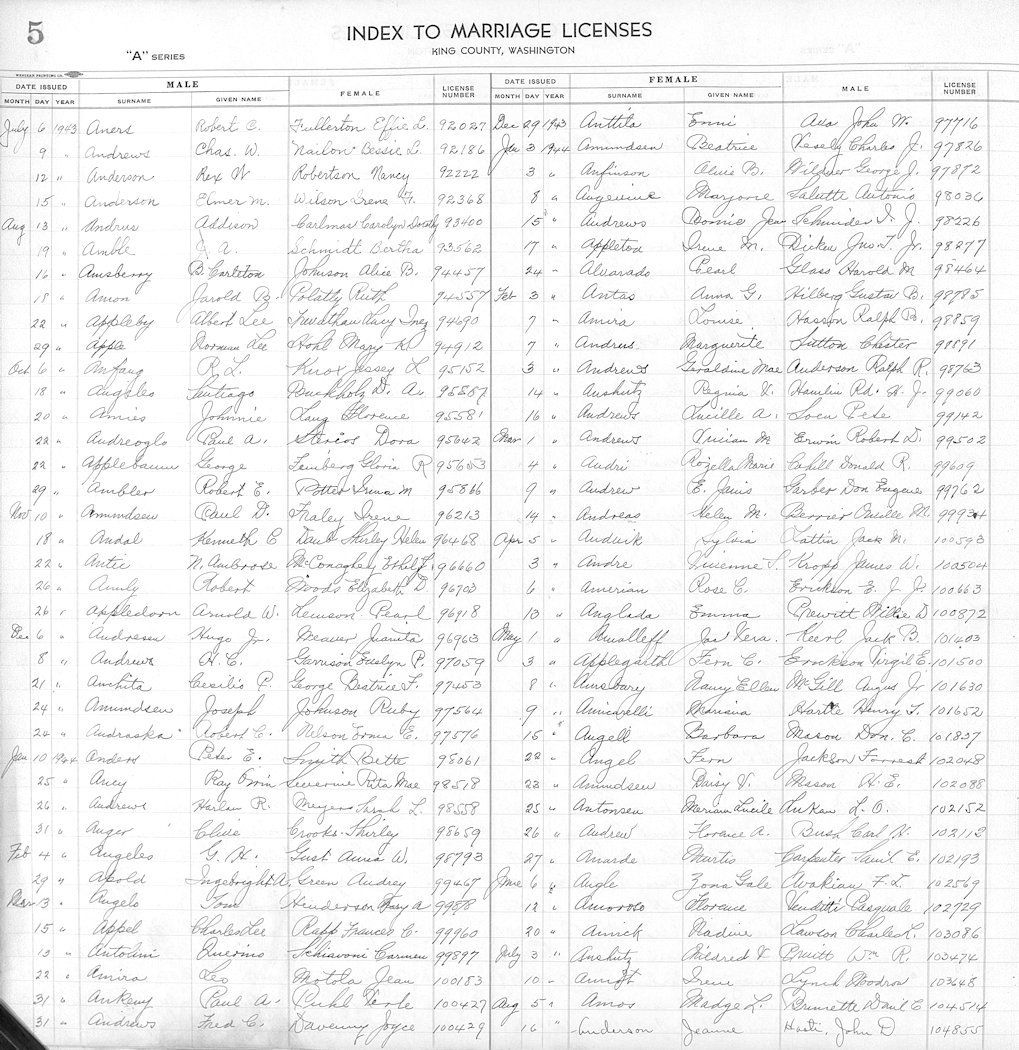 5
INDEX TO MARRIAGE LICENSES
KING COUNTY, WASHINGTON
"A" SERIES
WESTERN PRINTING CO.
DATE ISSUED MALE FEMALE LICENSE NUMBER
MONTH DAY YEAR SURNAME GIVEN NAME
July 6 1943 Aners Robert C. Fullerton Effie L. 92027
9 " Andrews Chas. W. Nailon Bessie L. 92186
12 " Anderson Rex W Robertson Nancy 92222
15 " Anderson Elmer M. Wilson Irene F. 92368
Aug 13 " Andrus Addison Carlmas Carolyn Dorothy 93400
19 " Amble A. Schmidt Bertha 93562
16 " Amsberry B. Carleton Johnson Alice B. 94457
18 " Amon Jarold B. Polatly Ruth 94557
22 " Appleby Albert Lee Inez 94690
29 " Apple Norman Lee Hohl Mary K. 94912
Oct 6 " Anfang R. L. Knox Jessey L 95152
18 " Santiago Buckholz D. A. 95587
20 " Amies Johnnie Lang Florence 95581
22 " Andreoglo Paul A. Stericos Dora 95642
22 " Applebaum George Leinberg Gloria R 95653
29 " Ambler Robert E. Potter Irma M 95866
Nov 10 " Amundsen Paul D. Fraley Irene 96213
18 " Andal Kenneth C Daub Shirley Helen 96468
22 " Antic N. Ambrose McConaghey Ethel F. 96660
26 " Robert Woods Elizabeth D. 96703
26 " Appledoorn Arnold W. Lewison Pearl 96918
Dec 6 " Andresen Hugo Jr. Weaver Juanita 96963
8 " Andrews H. C. Garrison Evelyn P. 97059
21 " Anchita Cecilio P. George Beatrice F. 97453
24 " Amundsen Joseph Johnson Ruby 97564
24 " Andraska Robert C. Nelson Erma E. 97576
Jan 10 1944 Anders Peter E. Smith Bette 98061
25 " Ancy Ray Orvin Severine Rita Mae 98518
26 " Andrews Harlan R. Meyers Sarah L. 98558
31 " Anger Clive Crooks Shirley 98659
Feb 4 " Angeles G. H. Gust Anna W. 98793
29 " Apold Ingebright A. Green Audrey 99467
Mar 13 " Angelo Tom Henderson Mary A 99878
15 " Appel Charles Lee Rapp Frances C. 99960
13 " Antolini Querino Schiavoni Carmen 99897
22 " Amira Leo Motola Jean 100183
31 " Ankeny Paul A. 100427
31 " Andrews Fred C. Davenny Joyce 100429
DATE ISSUED FEMALE MALE LICENSE NUMBER
MONTH DAY YEAR SURNAME GIVEN NAME
Dec 29 1943 Anttila Enni Ava John W. 97716
Jan 3 1944 Amundsen Beatrice Vesely Charles J. 97826
3 " Anfinson Olive B. Wildner George J. 97872
8 " Marjorie Salutto Antonio 98036
15 " Andrews Donnie Jean Schnuider I. J. 98226
17 " Appleton Irene M. Dickie Jno. T. Jr. 98277
24 " Alvarado Pearl Glass Harold M 98464
Feb 3 " Antas Anna G. Hilberg Gustav B. 98785
7 " Amira Louise Hasson Ralph B. 98859
7 " Andrus Marguerite Sutton Chester 98891
3 " Andrews Geraldine Mae Anderson Ralph R. 98763
14 " Anshutz Regina V. Hamlin Rd. H. J. 99060
16 " Andrews Lucille A. Loen Pete 99142
Mar 1 " Andrews Vivian M Erwin Robert D. 99502
4 " Andri Rozella Marie Cahill Donald R. 99609
9 " Andrew E. Janis Garber Don Eugene 99762
14 " Andreas Helen M. Berrier Orville M. 99934
Apr 5 " Anduik Sylvia Lattin Jack M. 100593
3 " Andre Vivienne S. Kropp James W. 100504
6 " Amerian Rose C. Erickson E. J. Jr. 100663
13 " Anglada Emma Prewitt Willie D 100872
May 1 " Amalleff Jas Vera Keerl Jack B. 101403
3 " Applegarth Fern C. Erickson Virgil E. 101500
8 " Amsbary Nancy Ellen McGill Angus Jr 101630
9 " Amicarelli Mariana Hartle Henry T. 101652
15 " Angell Barbara Mason Don. C. 101837
22 " Angel Fern Jackson Forrest 102048
23 " Amundsen Daisy V. Mason H. E. 102088
25 " Antonsen Miriam Lucile Lukan L. O. 102152
26 " Andrew Florence A. Bush Carl H. 102113
27 " Anarde Murtis Carpenter Saml E. 102193
June 6 " Angle Zona Gale Avakian F. L. 102569
12 " Amoroso Florence Venditti Pasquale 102729
20 " Amick Nadine Lawson Charles L. 103086
July 3 " Anshutz Mildred V Pruitt Wm R. 103474
10 " Irene Lynch Woodrow 103648
Aug 5 " Amos Madge L. Brunette Danl C 104514
16 " Anderson Jeanne Hasti, John D 104855